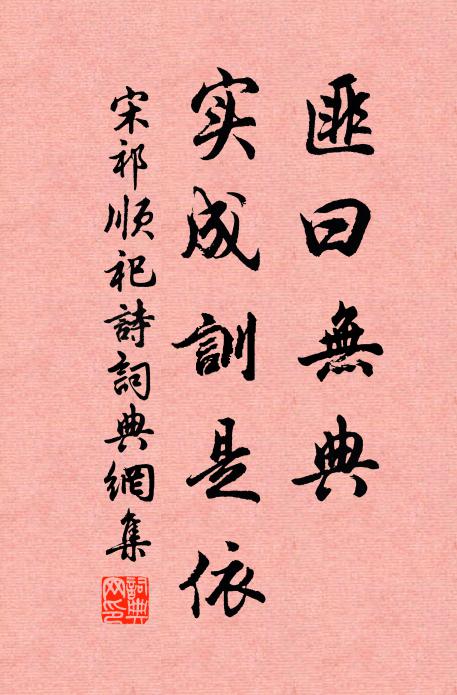 匪曰無典
实成訓是依
宋祁順祀詩詞典網集
詞典網印